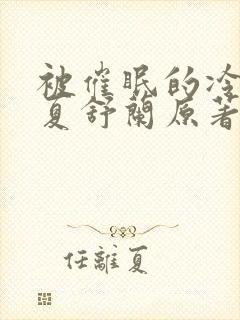 被催眠的冷
夏舒蘭原著
任離夏